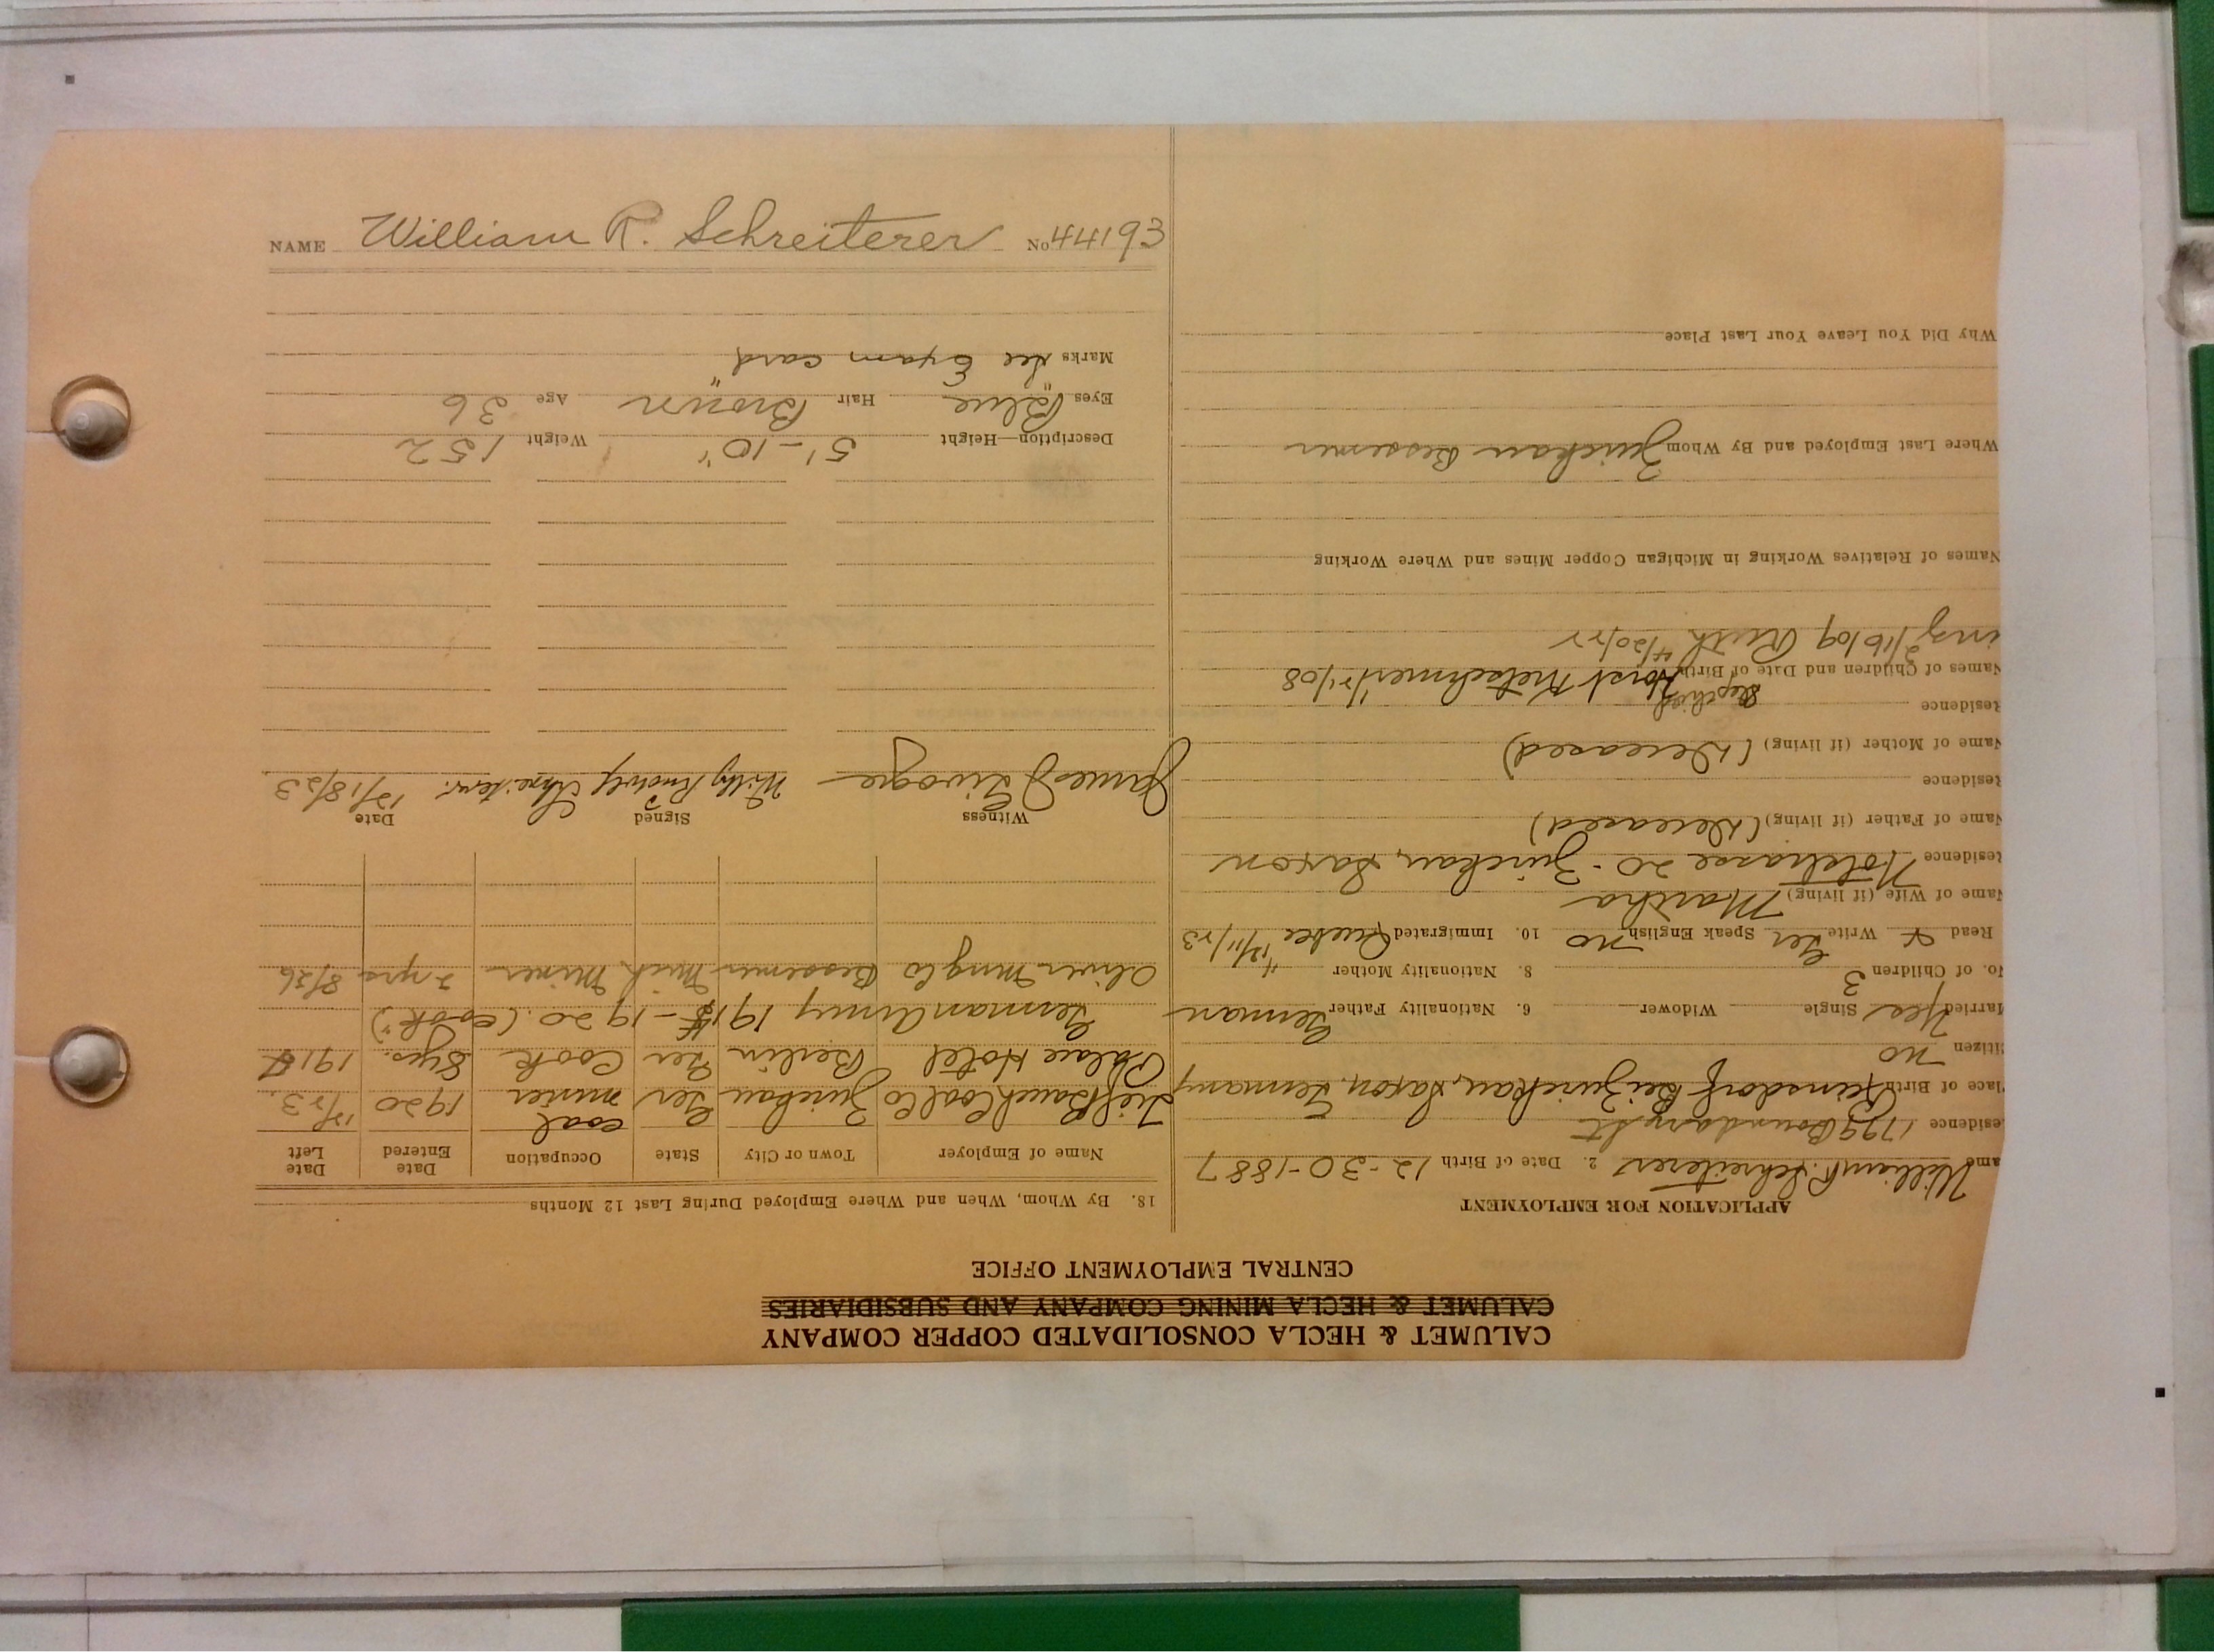 CALUMET & HECLA CONSOLIDATED COPPER COMPANY
CALUMET & HECLA MINING COMPANY AND SUBSIDIARIES
CENTRAL EMPLOYMENT OFFICE
APPLICATION FOR EMPLOYMENT
ame William R. Schreiterer 2. Date of Birth 12-30-1887
esidence 1729 Boundary St
lace of Birth Reinsdorf Bei Zwickau, Saxon, Germany
itizen no
Married Yes Single Widower 6. Nationality Father German
No. of Children 3 8. Nationality Mother "
Read & Write Ger Speak English no 10. Immigrated Quebec 12/11/23
Name of Wife (if living) Martha
Residence 20 - Zwickau, Saxon
Name of Father (if living) (Deceased)
Residence
Name of Mother (if living) (Deceased)
Residence
Names of Children and Date of Birth Horst Kretschmer
2/16/09 Ruth 4/20/22
Names of Relatives Working in Michigan Copper Mines and Where Working
Where Last Employed and By Whom Zwickau Bessemer
Why Did You Leave Your Last Place
18. By Whom, When and Where Employed During Last 12 Months
Name of Employer Town or City State Occupation Date Entered Date Left
Tief Bau Coal Co Zwickau Ger coal miner 1920 12/23
Palace Hotel Berlin Ger Cook 8 yrs.
German Army 1915 - 1920 (Cook")
Oliver Mng Co Bessemer Mich Miner 2 yrs 8/26
Witness Signed Date
James Livogie Willy Rudolf Schreiterer. 12/18/23
Description—Height 5'-10" Weight 152
Eyes Blue Hair Brown Age 36
Marks See Exam card
NAME William R. Schreiterer No 44193